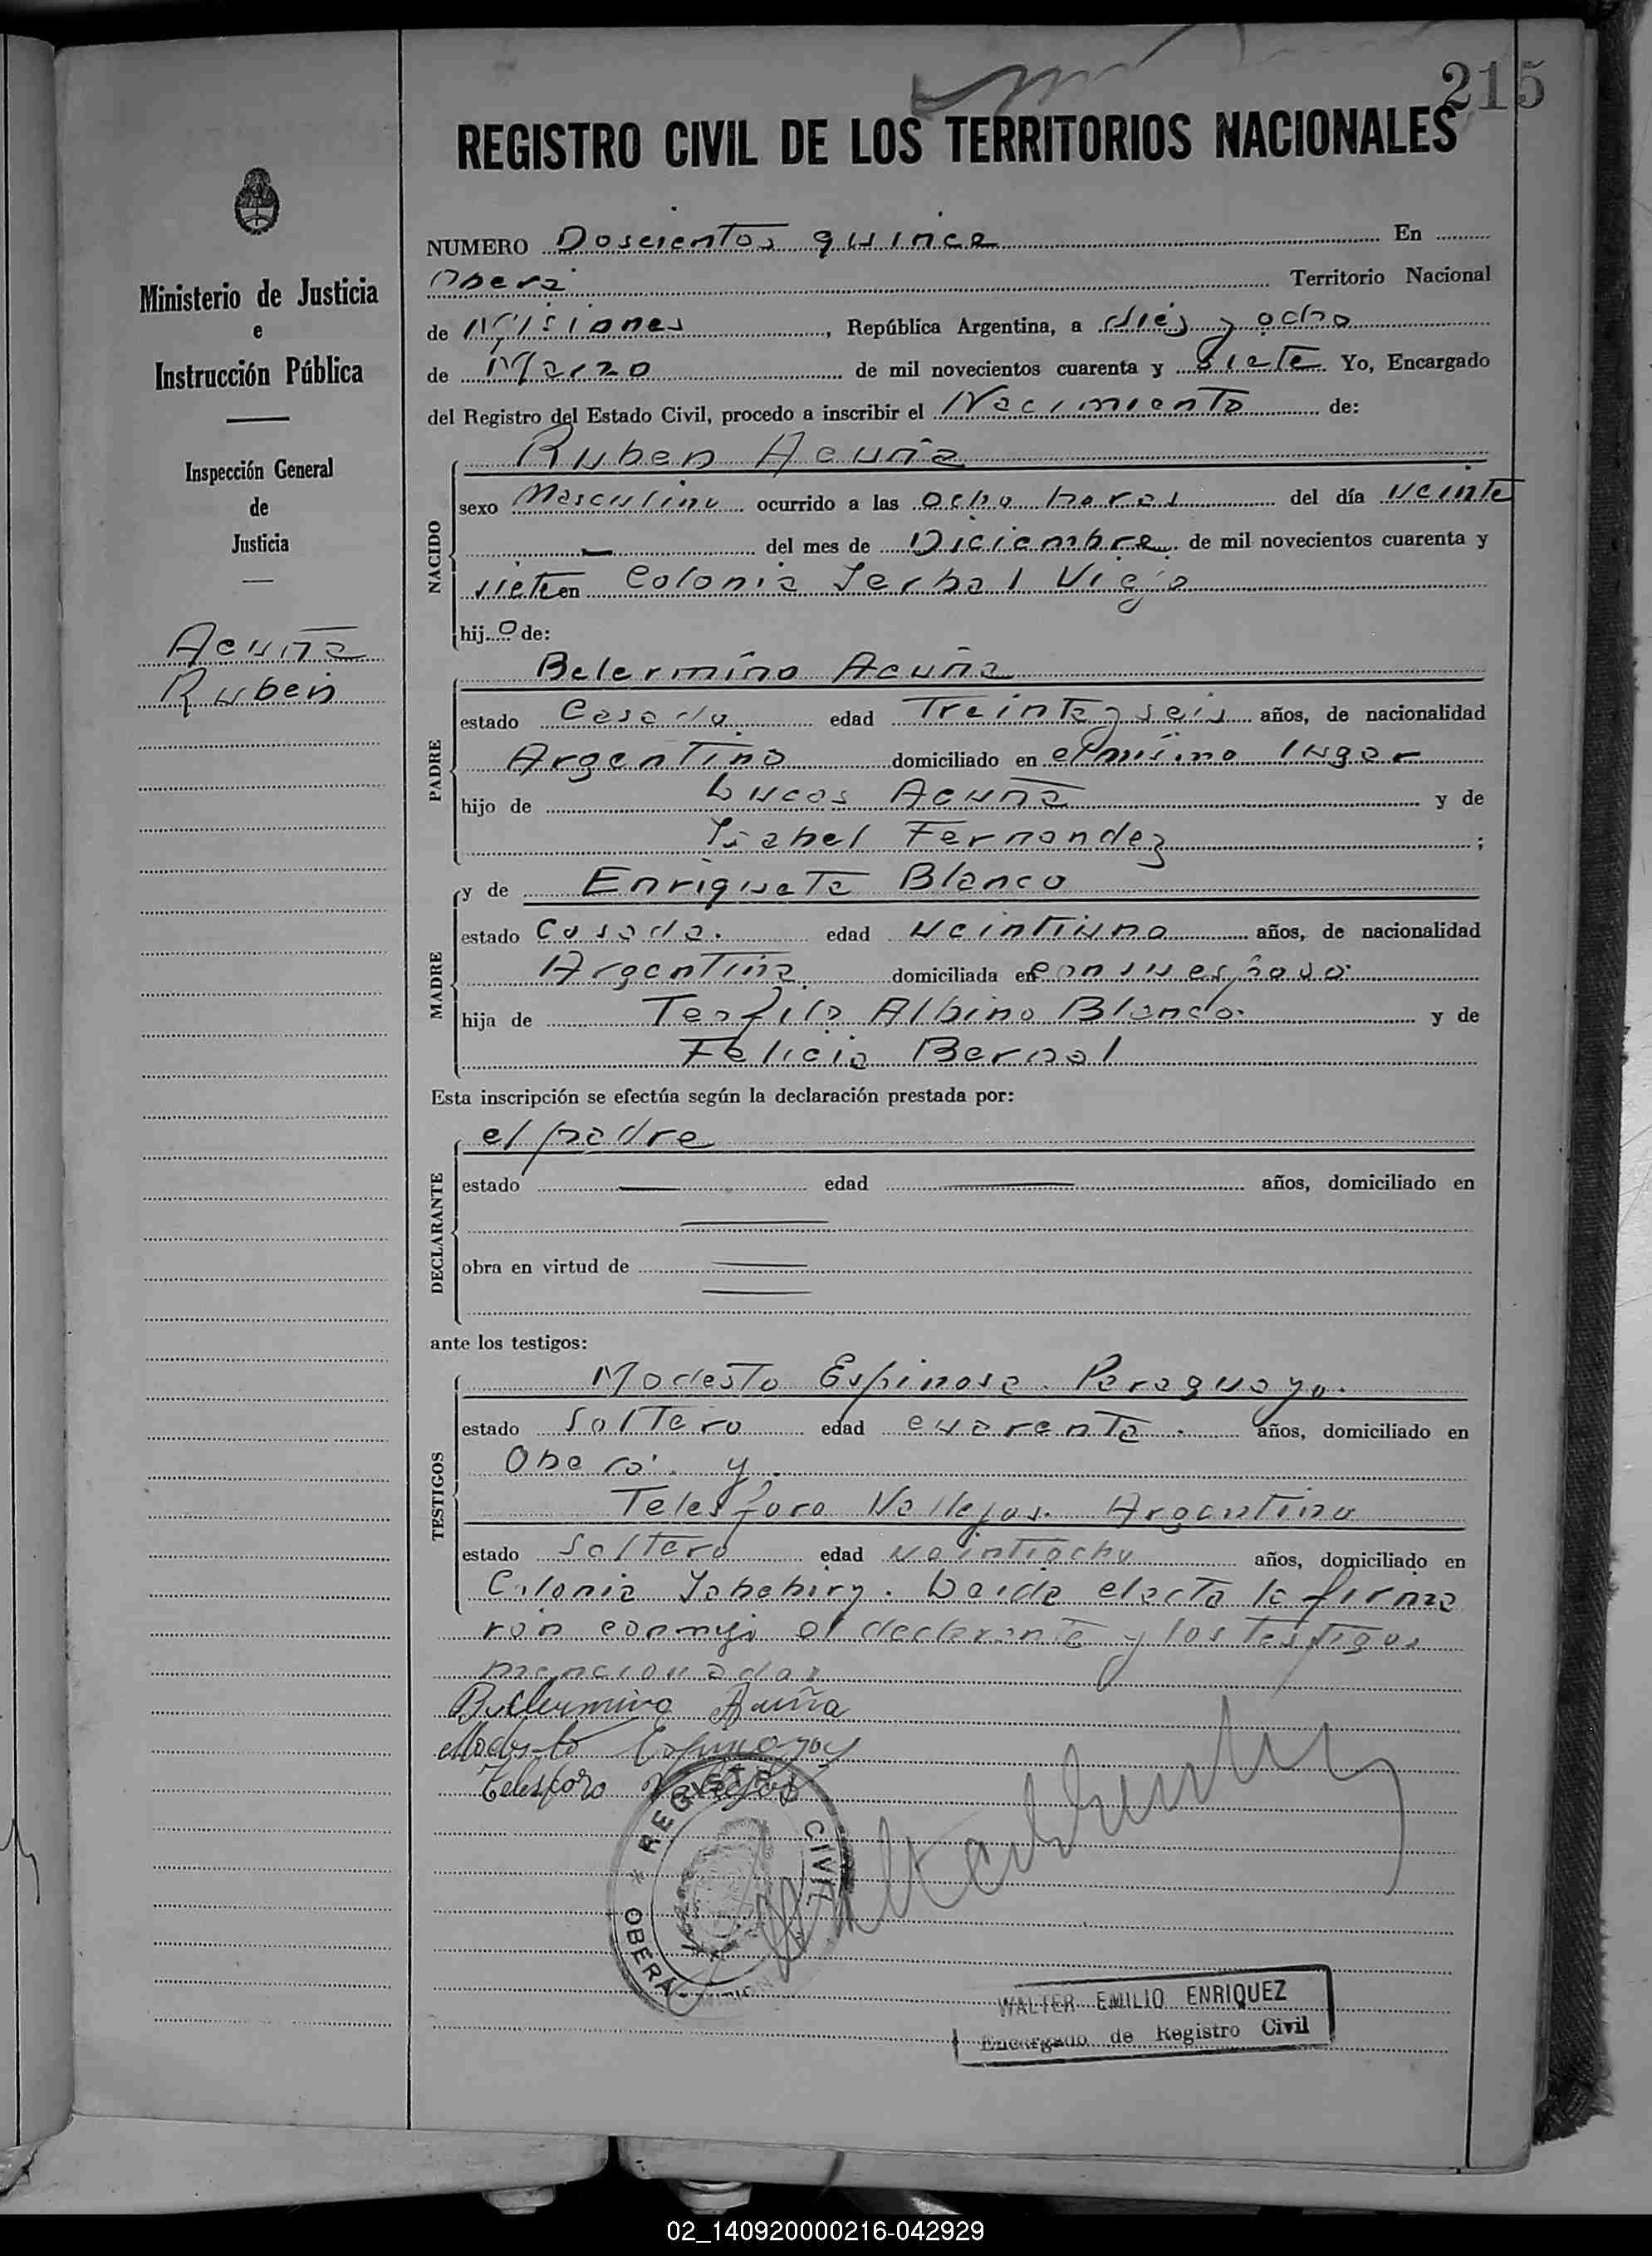 215
REGISTRO CIVIL DE LOS TERRITORIOS NACIONALES
Ministerio de Justicia
e
Instrucción Pública
Inspección General
de
Justicia
Acuña
Ruben
NUMERO Doscientos quince En
Oberá Territorio Nacional
de Misiones, República Argentina, a diés y ocho
de Marzo de mil novecientos cuarenta y siete Yo, Encargado
del Registro del Estado Civil, procedo a inscribir el Nacimiento de:
NACIDO
Ruben Acuña
sexo Masculino ocurrido a las ocho horas del día veinte
— del mes de Diciembre de mil novecientos cuarenta y
siete en Colonia Yerbal Viejo
hijo de:
PADRE
Belermino Acuña
estado Casado edad Treinta y seis años, de nacionalidad
Argentino domiciliado en el mismo lugar
hijo de Lucas Acuña y de
Isabel Fernandez ;
MADRE
y de Enriqueta Blanco
estado Casada. edad veintiuno años, de nacionalidad
Argentina domiciliada en con su esposo
hija de Teofilo Albino Blanco y de
Felicia Bernal
Esta inscripción se efectúa según la declaración prestada por:
DECLARANTE
el padre
estado — edad — años, domiciliado en
obra en virtud de
ante los testigos:
TESTIGOS
Modesto Espinosa. Paraguayo.
estado Soltero edad cuarenta. años, domiciliado en
Oberá. y.
Telesforo Vallejos. Argentino
estado Soltero edad veintiocho años, domiciliado en
Colonia Yabebiry. Leida el acta la firma
ron conmigo el declarante y los testigos
mencionados
Belermino Acuña
Modesto
Telesforo Vallejos
REGISTRO CIVIL
OBERÁ
WALTER EMILIO ENRIQUEZ
Encargado de Registro Civil
02_140920000216-042929